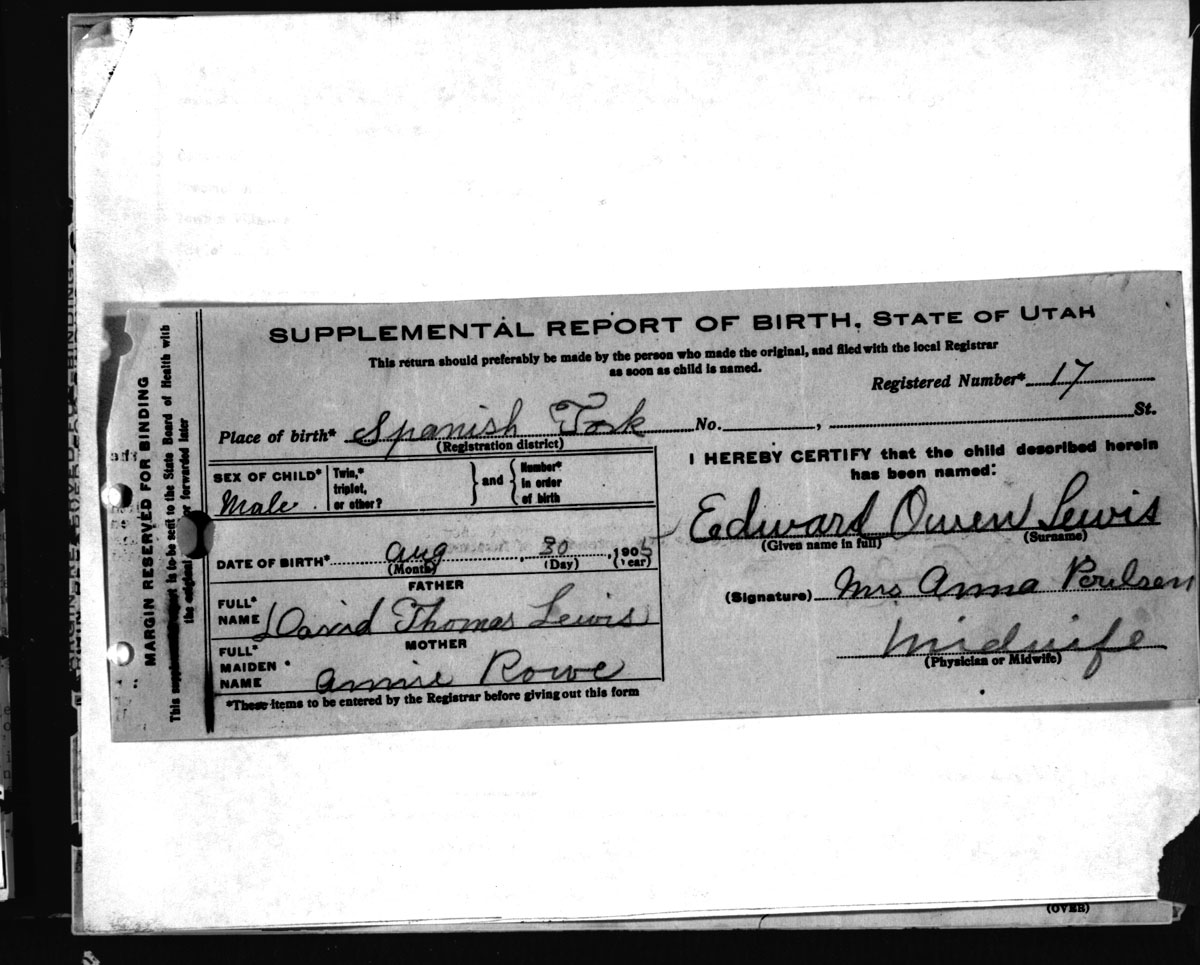 SUPPLEMENTAL REPORT OF BIRTH, STATE OF UTAH
This return should preferably be made by the person who made the original, and filed with the local Registrar
as soon as child is named.
Registered Number* 17
Place of birth* Spanish Fork No. , St.
(Registration district)
SEX OF CHILD*
Male
Twin,*
triplet,
or other?
} and {
Number*
in order
of birth
DATE OF BIRTH* Aug 30, 1905
(Month) (Day) (Year)
FATHER
FULL*
NAME David Thomas Lewis
MOTHER
FULL*
MAIDEN *
NAME Annie Rowe
*These items to be entered by the Registrar before giving out this form
I HEREBY CERTIFY that the child described herein
has been named:
Edward Owen Lewis
(Given name in full) (Surname)
(Signature) Mrs Anna
Midwife
(Physician or Midwife)
MARGIN RESERVED FOR BINDING
This is to be sent to the State Board of Health with
the original or forwarded later
(OVER)